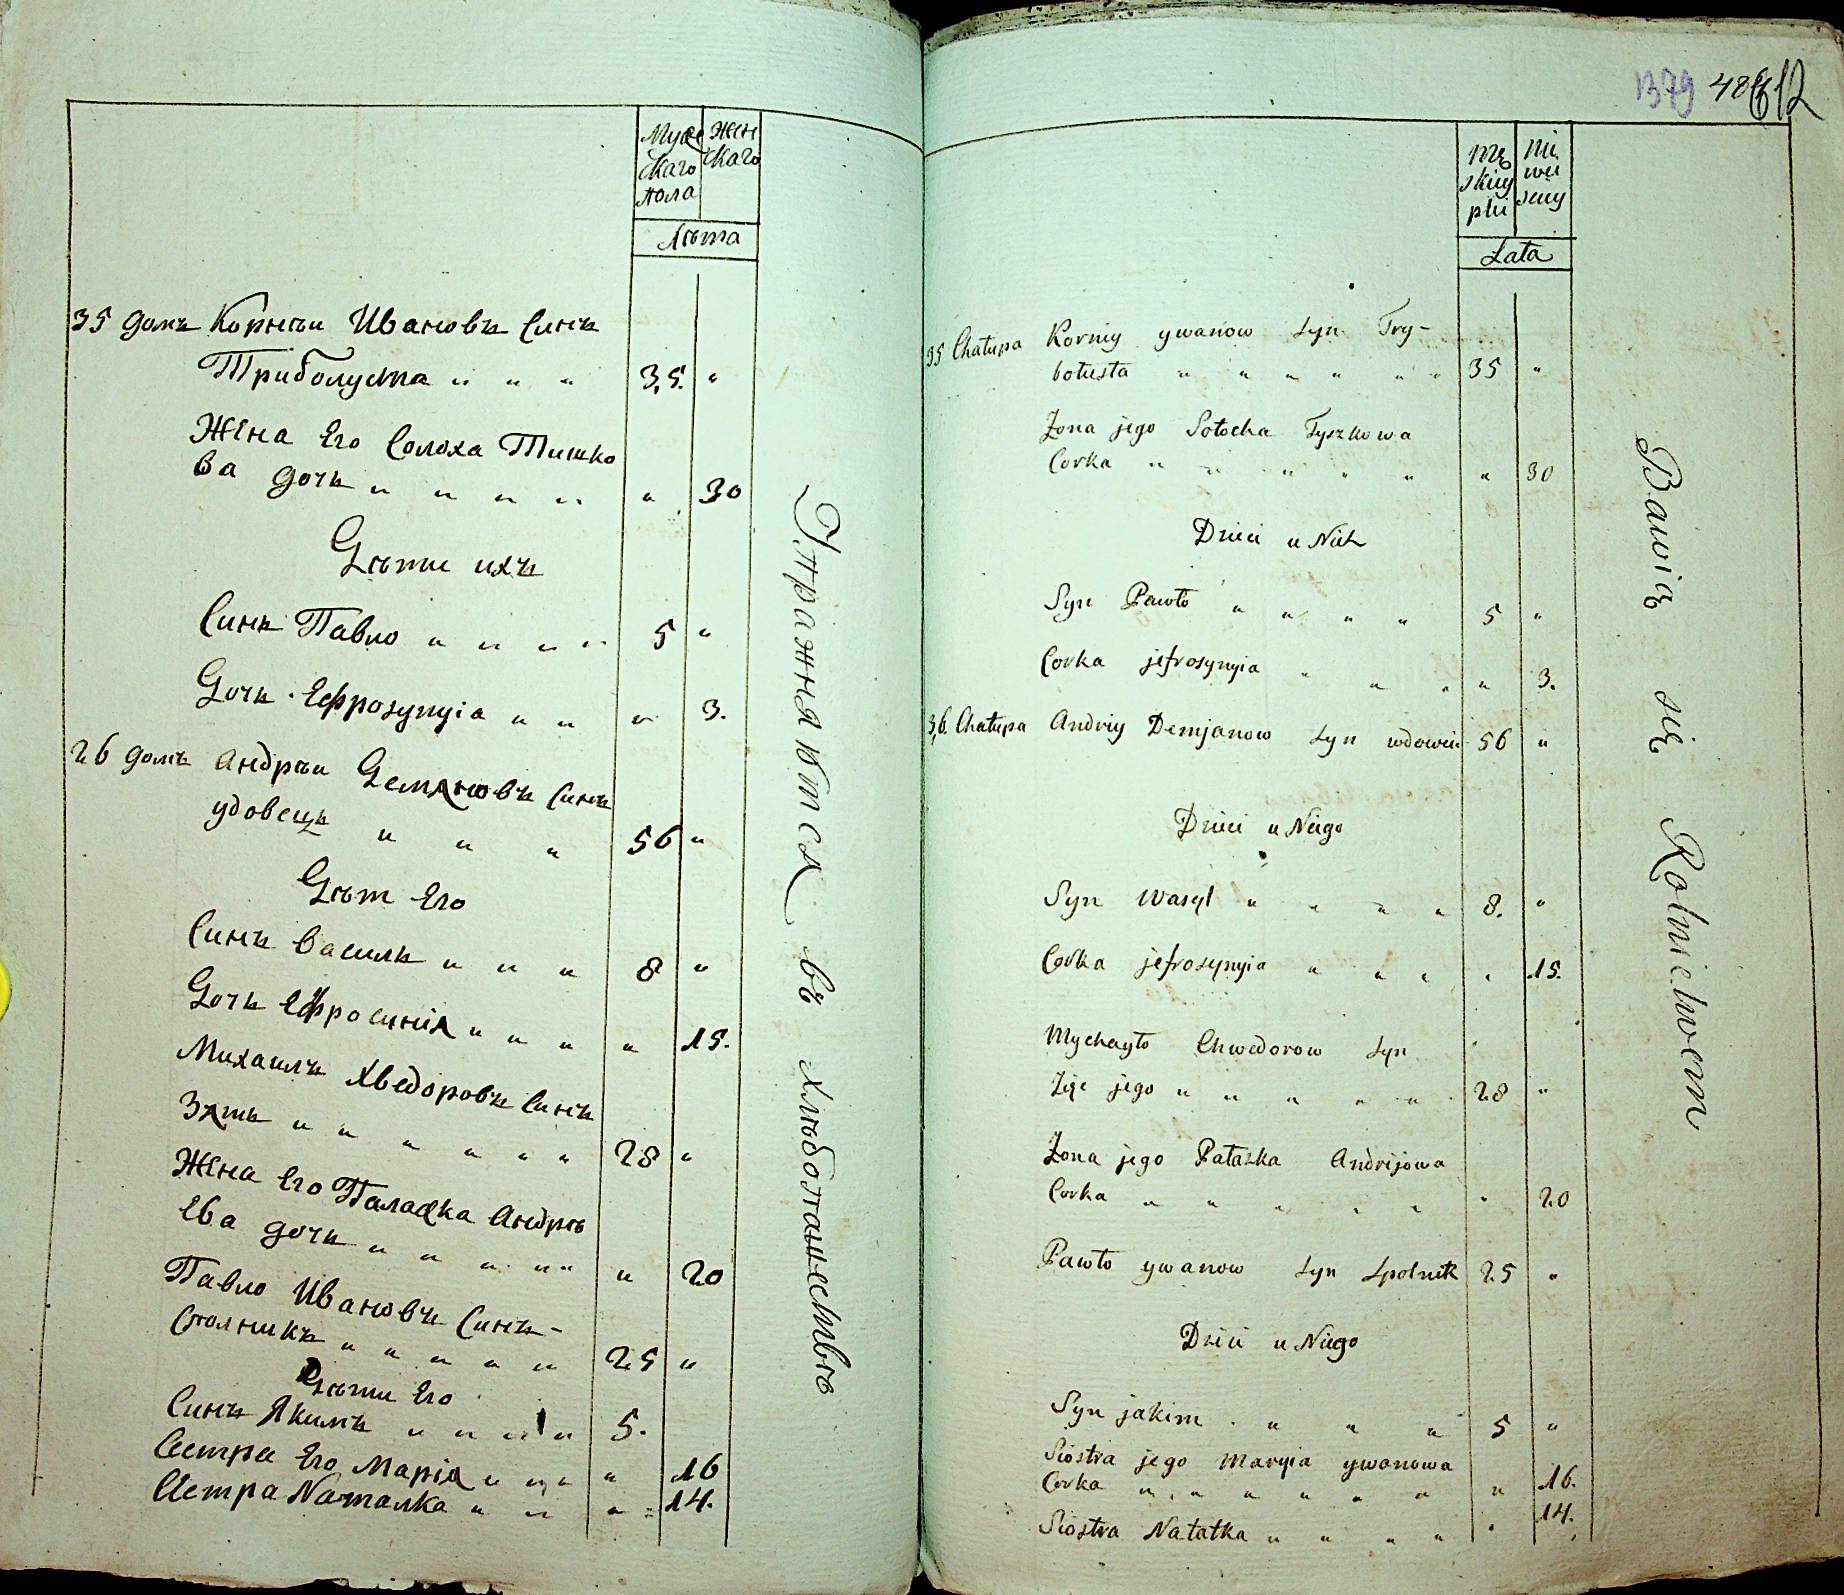 Муже Жен
скаго скаго
пола
Лѣта
35 домъ Корнѣи Ивановъ синъ
Триболуста " " " 35. "
Жена Его Солоха Тишко
ва дочь " " " " " 30
Дѣти ихъ
Синъ Павло " " " " 5 "
Дочь Ефроsynyia " " " 3.
26 домъ Андрѣи Демяновъ синъ
удовецъ " " " 56 "
Дѣт Его
Синъ Василь " " " 8 "
Дочь Ефросинія " " " " 15.
Михаилъ Хведоровъ синъ
Зять " " " " " " 28 "
Жена Его Палажка Андрѣ
ева дочь " " " " " " 20
Павло Ивановъ Синъ-
Сполникъ " " " " " 25 "
Дѣти Его
Синъ Якимъ " " " " 5.
Сестра Его Марія " " " " 16
Сестра Наталка " " " " 14.
Упражняются въ хлѣбопашествѣ
1379 612
Mę Ni
skiey wie
płci sciey
Lata
35 Chałupa Korniy ywanow syn Try-
bołusta " " " " " " 35 "
Żona jego Sołocha Tyszkowa
Corka " " " " " " 30
Dzieci u Nich
Syn Pawło " " " " 5 "
Corka jefrosynyia " " " " 3.
36. Chałupa Andriy Demjanow syn wdowiec 56 "
Dzieci u Niego
Syn Wasyl " " " " 8. "
Corka jefrosynyia " " " " 15.
Mychayło Chwedorow syn
Zięć jego " " " " " 28 "
Żona jego Pałaszka Andrijowa
Corka " " " " " " 20
Pawło ywanow syn spolnik 25 "
Dzieci u Niego
Syn jakim " " " " 5 "
Siostra jego Maryia ywanowa
Corka " " " " " " " 16.
Siostra Natałka " " " " " 14.
Bawią się Rolnictwem